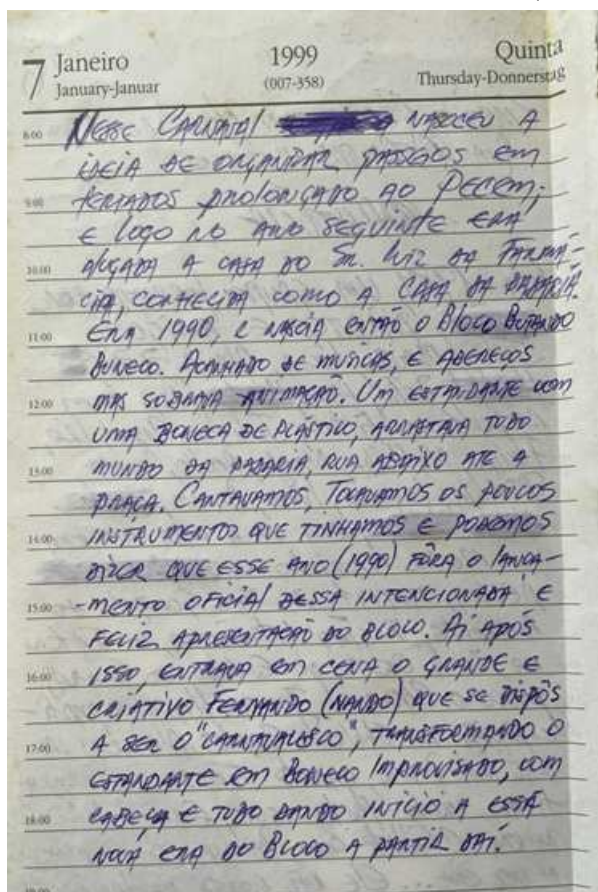 7 Janeiro 1999 Quinta
January-Januar (007-358) Thursday-Donnerstag
8:00 NESSE CARNAVAL NASCEU A
IDEIA DE ORGANIZAR PASSEIOS EM
9:00 FERIADOS PROLONGADO AO PECEM;
E LOGO NO ANO SEGUINTE ERA
10:00 ALUGADA A CASA DO SR. LUIZ DA FARMÁ-
CIA, CONHECIDA COMO A CASA DA PADARIA.
11:00 ERA 1990, E NASCIA ENTÃO O BLOCO BUTANDO
BUNECO. ACANHADO DE MUSICAS, E ADEREÇOS
12:00 MAS SOBRAVA ANIMAÇÃO. UM ESTANDARTE COM
UMA BONECA DE PLÁSTICO, ARRASTAVA TUDO
13:00 MUNDO DA PADARIA, RUA ABAIXO ATE A
PRAÇA. CANTAVAMOS, TOCAVAMOS OS POUCOS
14:00 INSTRUMENTOS QUE TINHAMOS E PODEMOS
DIZER QUE ESSE ANO (1990) FÔRA O LANÇA-
15:00 -MENTO OFICIAL DESSA INTENCIONADA E
FELIZ APRESENTAÇÃO DO BLOCO. AÍ APÓS
16:00 ISSO, ENTRAVA EM CENA O GRANDE E
CRIATIVO FERNANDO (NANDO) QUE SE DISPÔS
17:00 A SER O "CARNAVALESCO", TRANSFORMANDO O
ESTANDARTE EM BONECO IMPROVISADO, COM
18:00 CABEÇA E TUDO DANDO INÍCIO A ESSA
NOVA ERA DO BLOCO A PARTIR DAÍ.